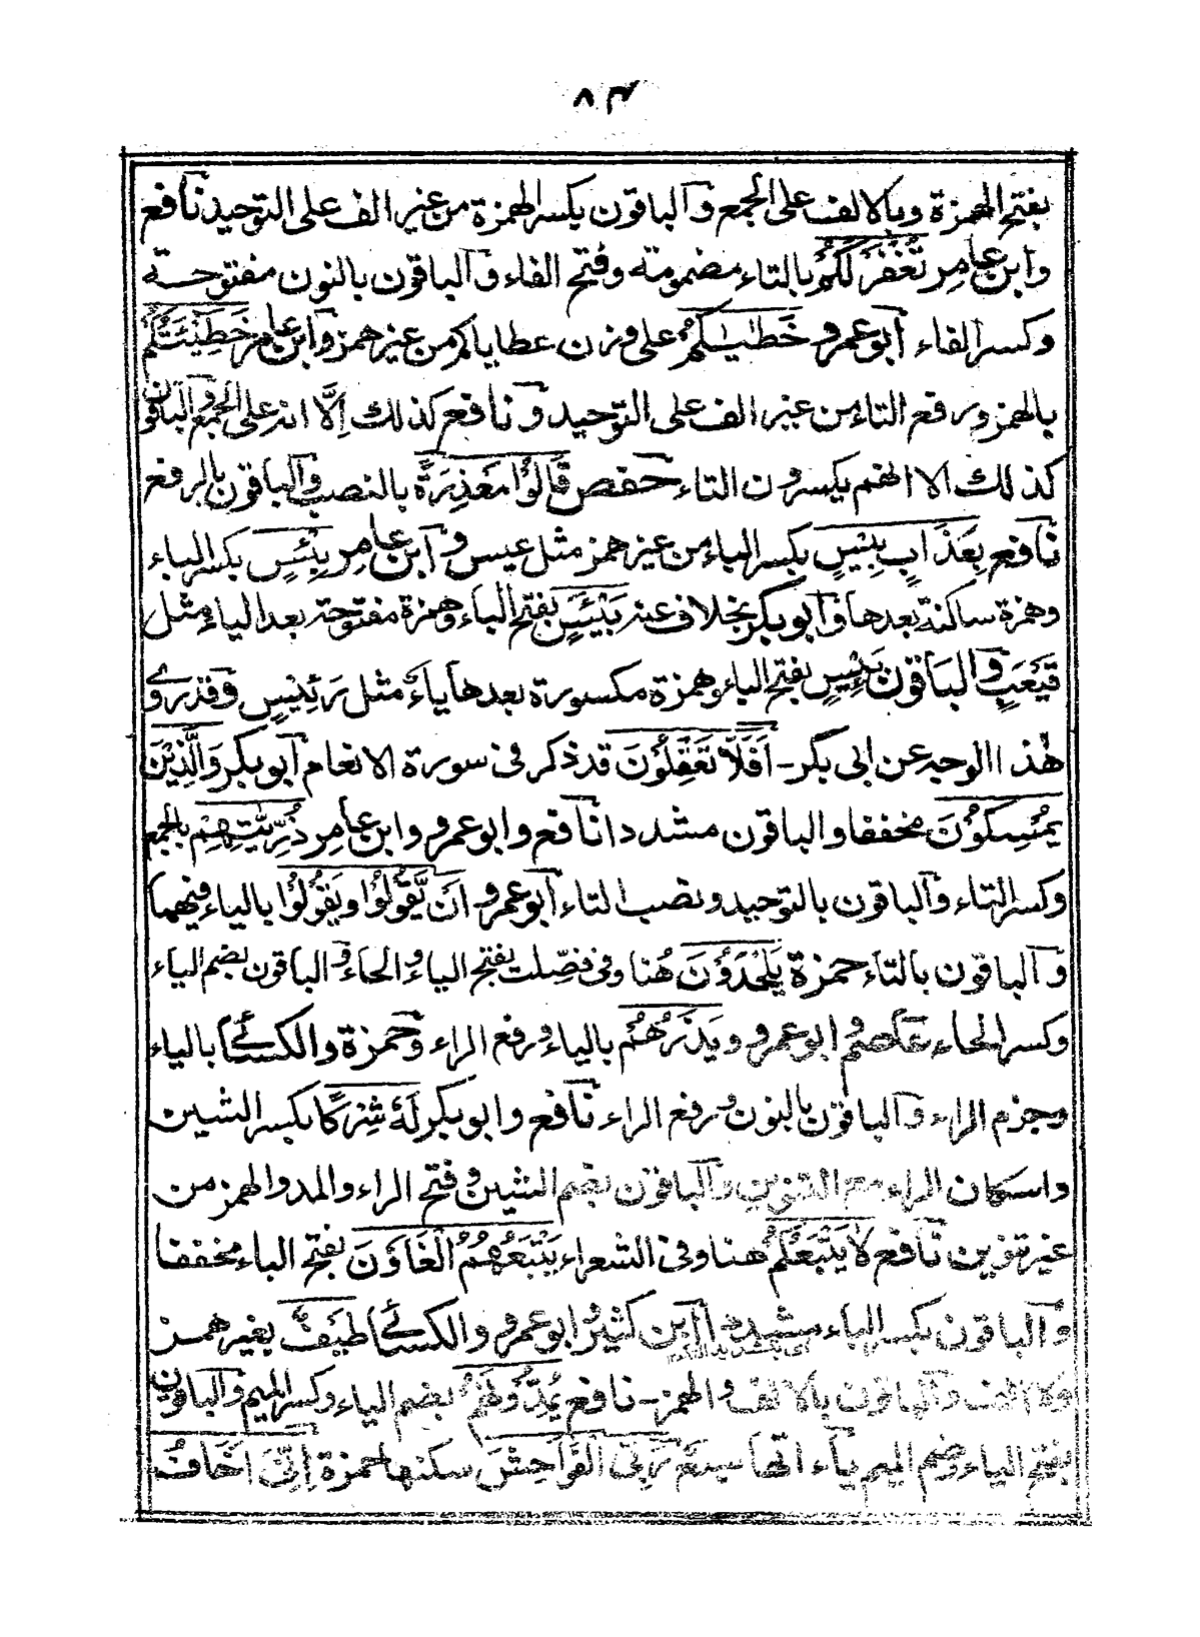 ٨٣
بفتح الهمزة وبالالف على الجمع والباقون بكسر الهمزة من غير الف على التوحيد نافع
وابن عامر تُغْفَرْ لَكُمْ بالتاء مضمومة وفتح الفاء والباقون بالنون مفتوحة
وكسر الفاء ابو عمرو خَطٰيٰكُمْ على وزن عطاياكم من غير همز وابن عامر خَطِيْئَتُكُمْ
بالهمز ورفع التاء من غير الف على التوحيد ونافع كذلك اِلَّا انه على الجمع والباقون
كذلك الا انهم يكسرون التاء حفص قَالُوْا مَعْذِرَةً بالنصب والباقون بالرفع
نافع بِعَذَابٍ بِيْسٍ بكسر الباء من غير همز مثل عيس وابن عامر بِئْسٍ بكسر الباء
وهمزة ساكنة بعدها وابو بكر بخلاف عنه بَيْئَسٍ بفتح الباء وهمزة مفتوحة بعد الياء مثل
والباقون بَئِيْسٍ بفتح الباء وهمزة مكسورة بعدها ياء مثل رَئِيْسٍ وقد روى
هٰذا الوجه عن ابى بكر - اَفَلَا تَعْقِلُوْنَ قد ذكر فى سورة الانعام ابو بكر وَالَّذِيْنَ
يُمْسِكُوْنَ مخففا والباقون مشددا نافع وابو عمرو وابن عامر ذُرِّيّٰتِهِمْ بالجمع
وكسر التاء والباقون بالتوحيد ونصب التاء ابو عمرو اَنْ يَّقُوْلُوْا ويَقُوْلُوْا بالياء فيهما
والباقون بالتاء حمزة يَلْحَدُوْنَ هُنا وفى فصّلت بفتح الياء والحاء والباقون بضم الياء
وكسر الحاء عاصم وابو عمرو ويَذَرُهُمْ بالياء ورفع الراء وحمزة والكسائى بالياء
وجزم الراء والباقون بالنون ورفع الراء نافع وابو بكر لَهٗ شِرْكًا بكسر الشين
واسكان الراء مع التنوين والباقون بضم الشين وفتح الراء والمد والهمز من
غير تنوين نافع لَا يَتْبَعُكُمْ هنا وفى الشعراء يَتْبَعُهُمُ الْغَاوٗنَ بفتح الباء مخففا
والباقون بكسر الباء مشددا ابن كثير وابو عمرو والكسائى طَيْفٌ بغير همز
ولا الف والباقون بالالف والهمز - نافع يُمِدُّوْنَهُمْ بضم الياء وكسر الميم والباقون
بفتح الياء وضم الميم ياءاتها سبعة رَبِّىَ الْفَوَاحِشَ سكنها حمزة اِنِّىْ اَخَافُ